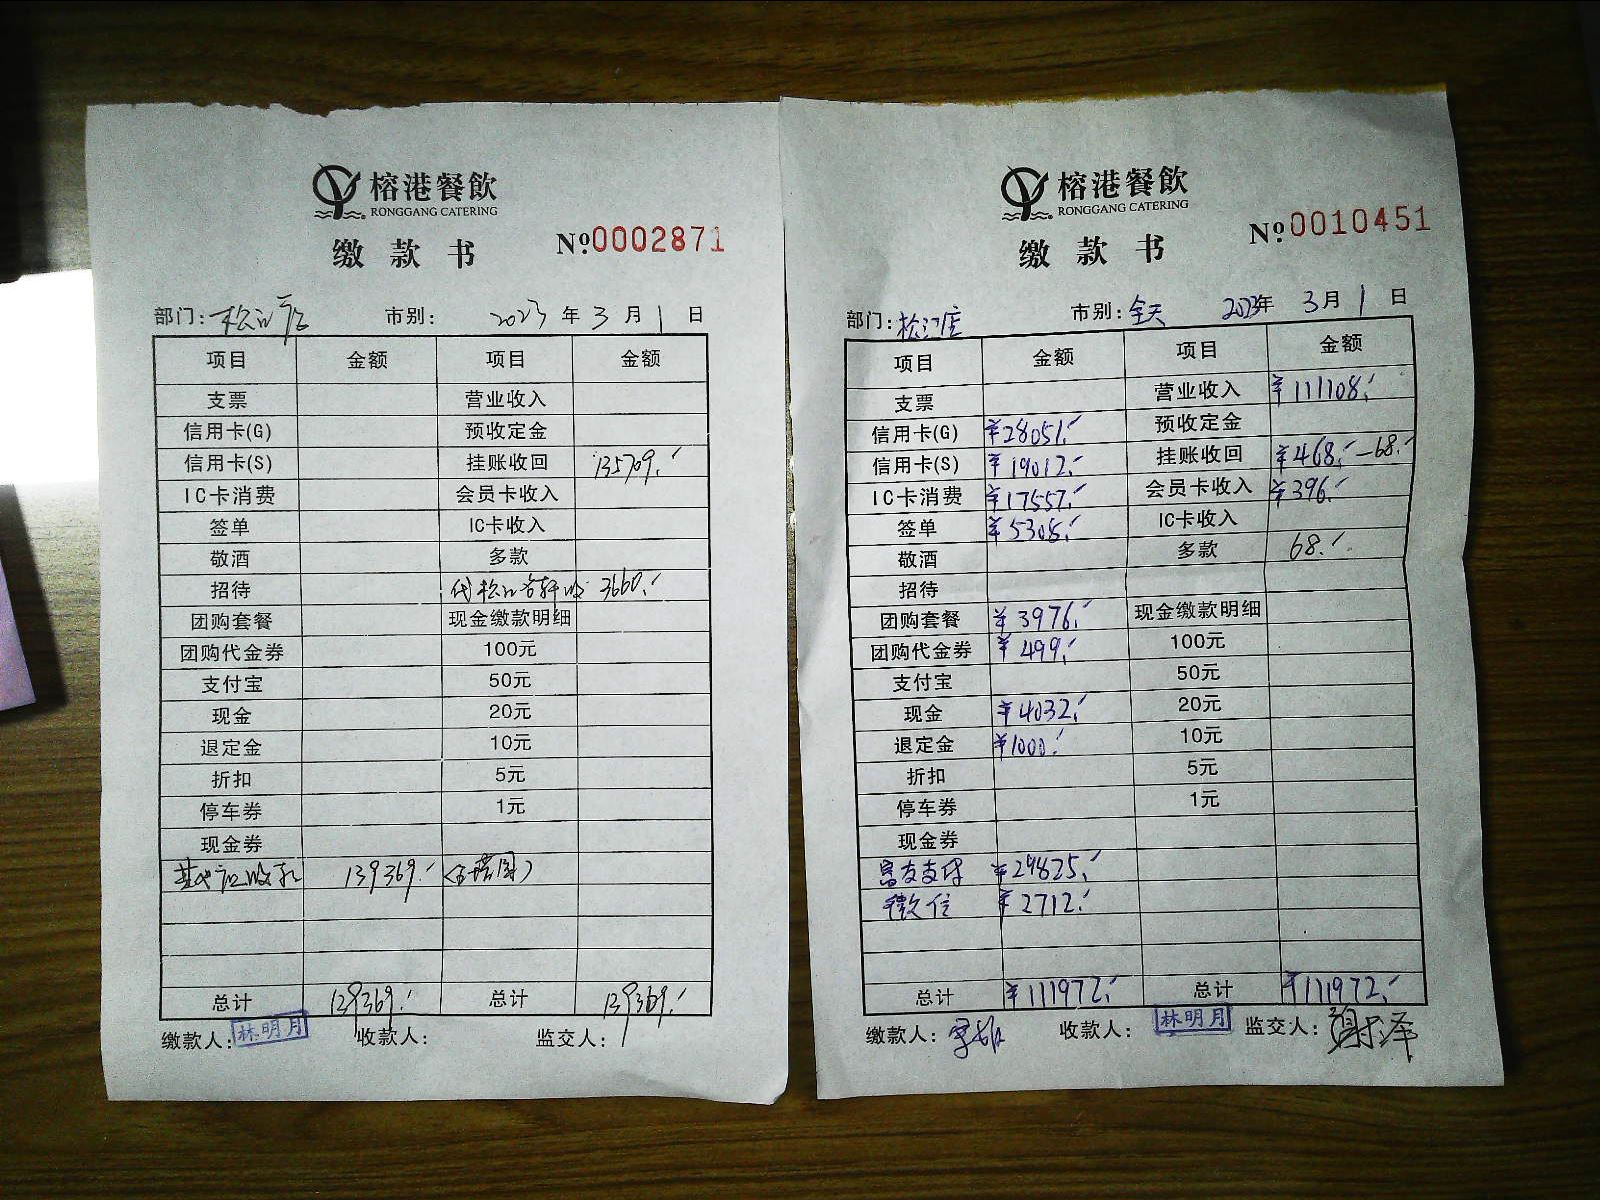 榕港餐飲
RONGGANG CATERING
缴款书 №0002871
部门：松江店 市别： 2023年3月1日
项目 金额 项目 金额
支票 营业收入
信用卡(G) 预收定金
信用卡(S) 挂账收回 135709.-
IC卡消费 会员卡收入
签单 IC卡收入
敬酒 多款
招待 代松江 3660.-
团购套餐 现金缴款明细
团购代金券 100元
支付宝 50元
现金 20元
退定金 10元
折扣 5元
停车券 1元
现金券
其他应收款 139369.-
总计 139369.- 总计 139369.-
缴款人：林明月 收款人： 监交人：
榕港餐飲
RONGGANG CATERING
缴款书 №0010451
部门：松江店 市别：全天 2023年3月1日
项目 金额 项目 金额
支票 营业收入 ¥111108.-
信用卡(G) ¥28051.- 预收定金
信用卡(S) ¥19012.- 挂账收回 ¥468.- -68.-
IC卡消费 ¥17557.- 会员卡收入 ¥396.-
签单 ¥5308.- IC卡收入
敬酒 多款 68.-
招待
团购套餐 ¥3976.- 现金缴款明细
团购代金券 ¥499.- 100元
支付宝 50元
现金 ¥4032.- 20元
退定金 ¥1000.- 10元
折扣 5元
停车券 1元
现金券
富友支付 ¥29825.-
微信 ¥2712.-
总计 ¥111972.- 总计 ¥111972.-
缴款人： 收款人：林明月 监交人：